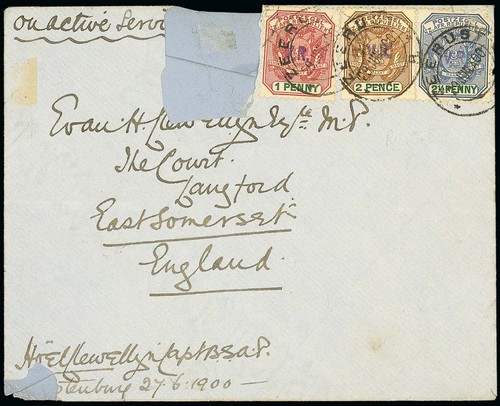 on active Servi
V.R.
V.R.
1 PENNY
2 PENCE
2½ PENNY
ZEERUST
ZEERUST
ZEERUST
Evan H. Llewellyn Esqre M.P.
The Court
Langford
East Somerset
England.
Hoël Llewellyn Capt B.S.A.P.
stenburg 27.6.1900—